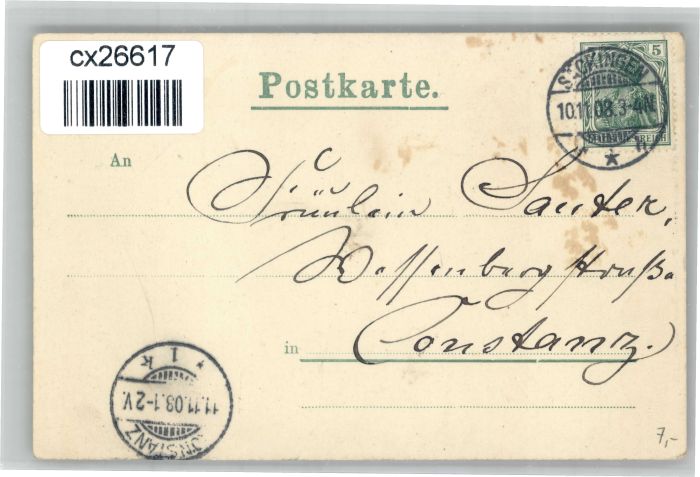 cx26617
Postkarte.
5
SÄCKINGEN
10.11.03.3-4N.
REICH
An
Fräulein Sauter,
Wessenbergstraße
in Constanz.
* 1 k
11.11.03.1-2V.
KONSTANZ
7,-